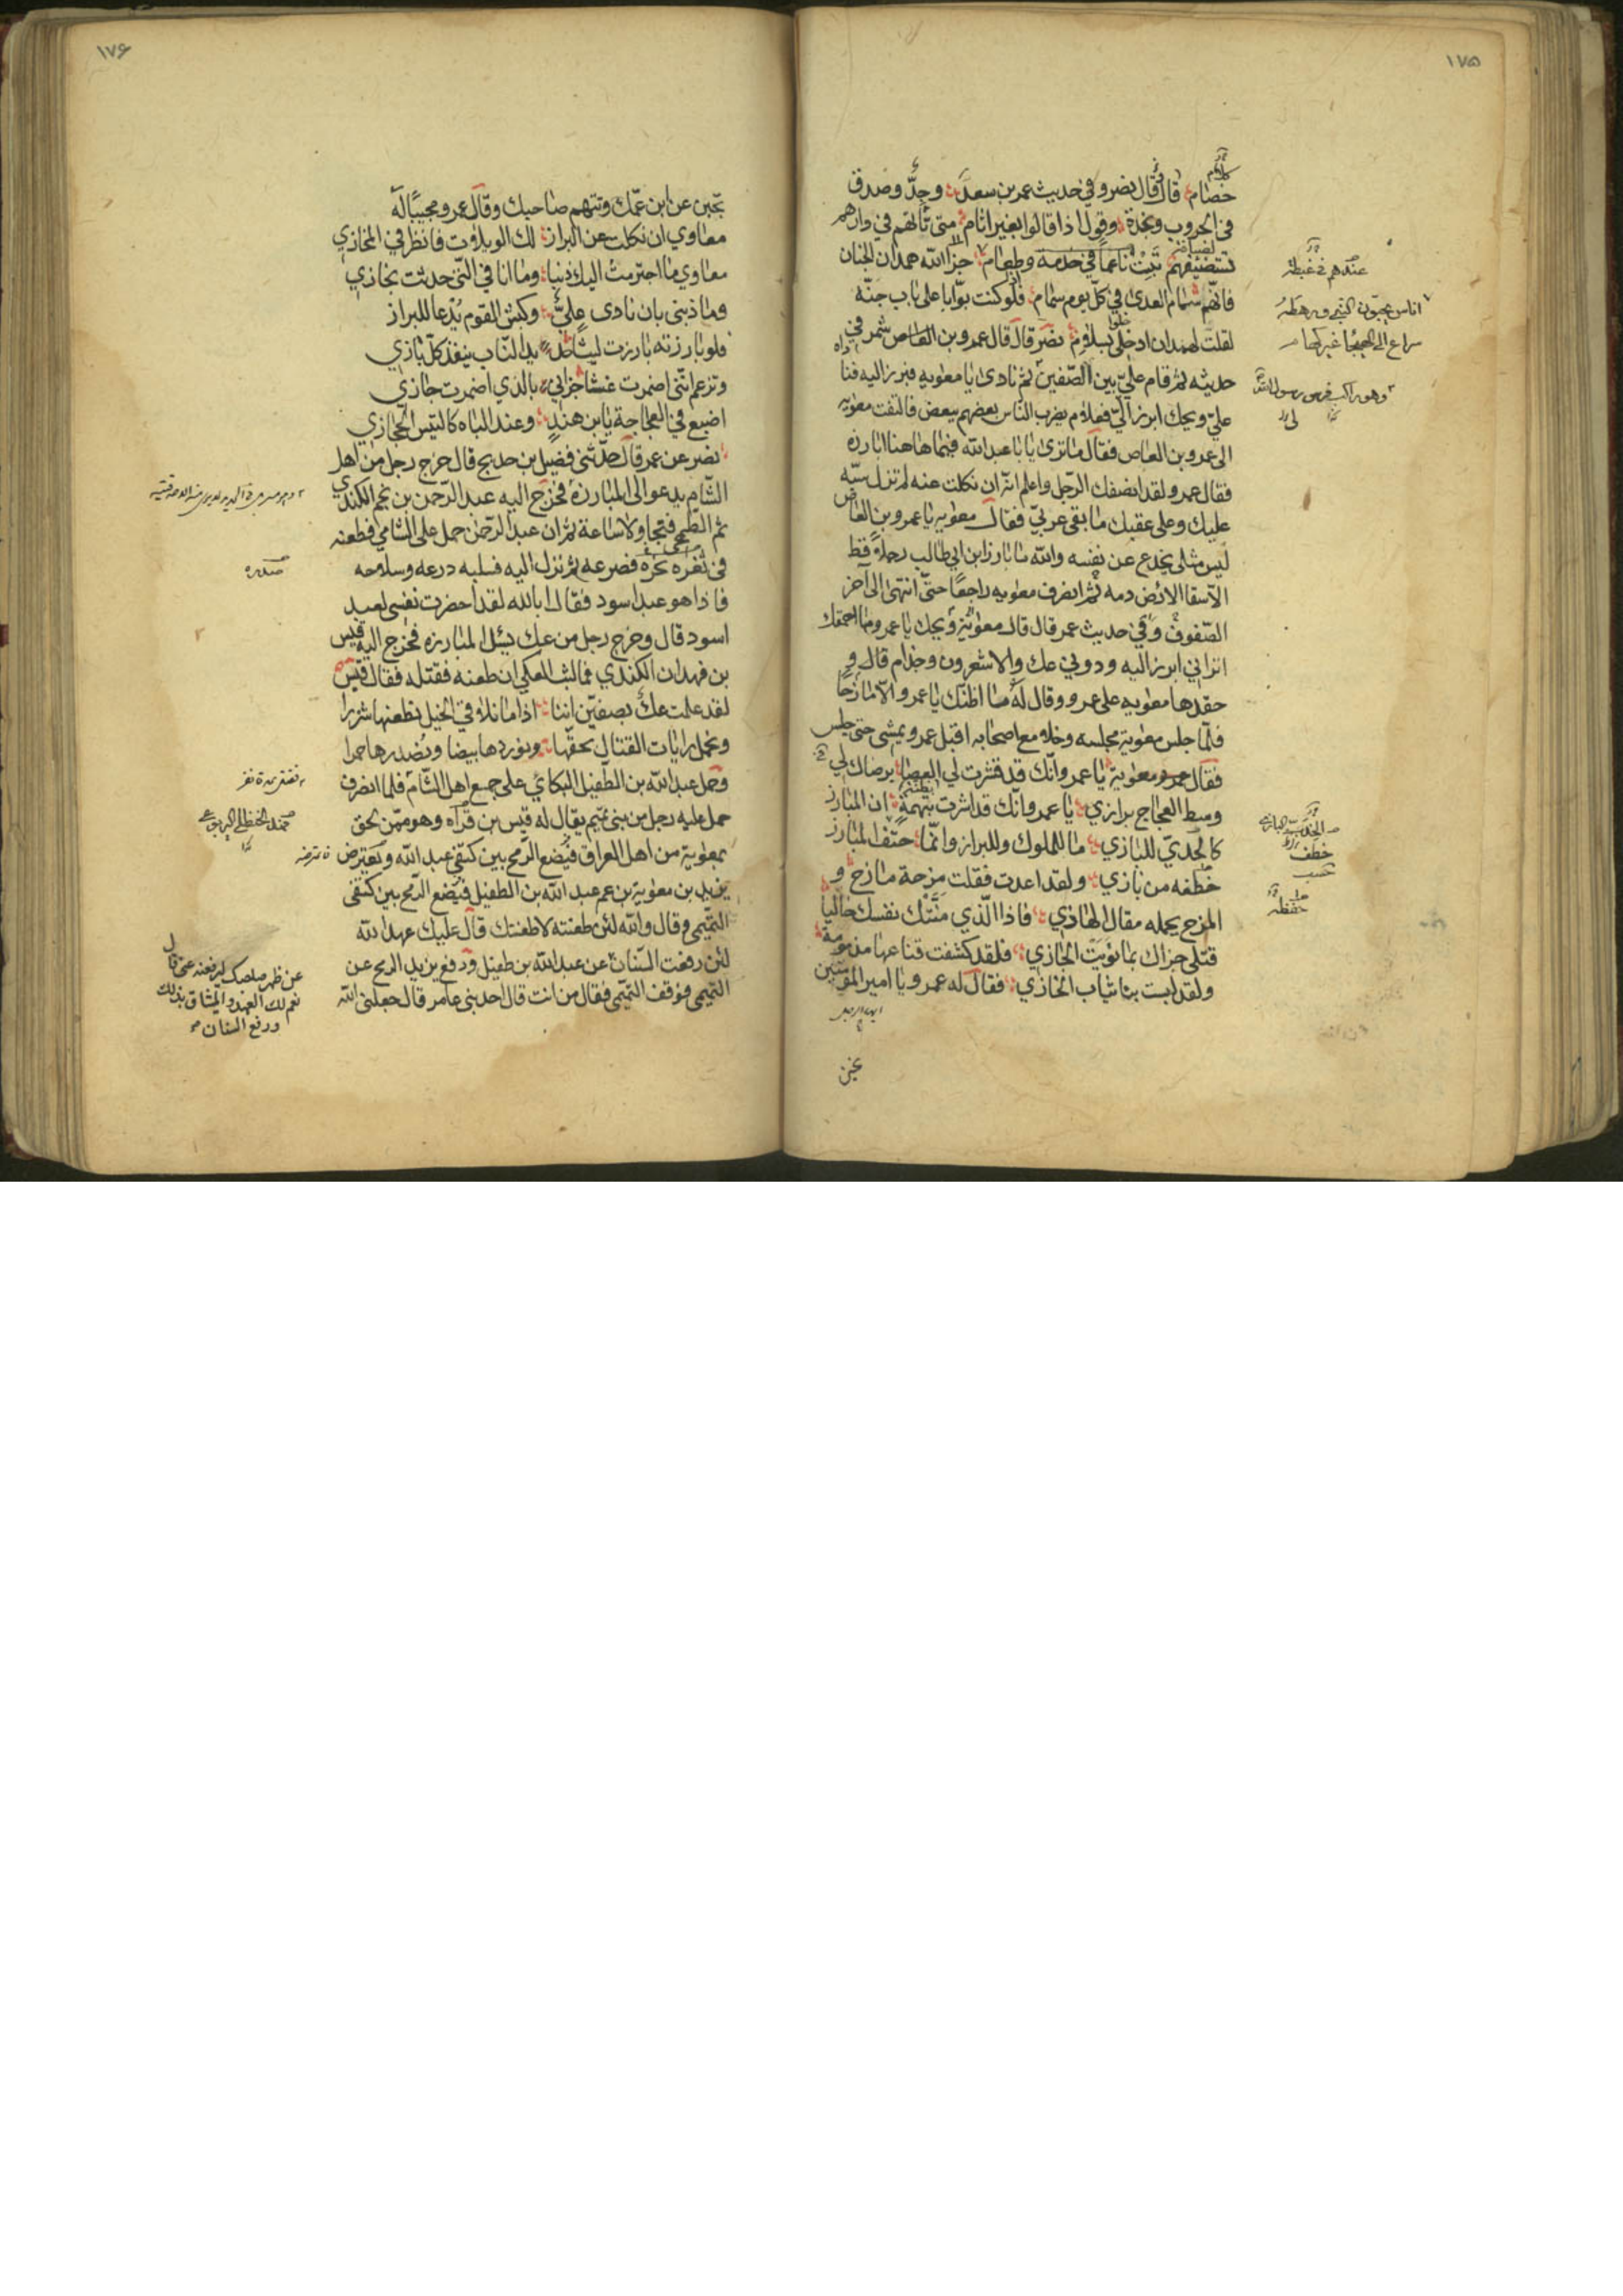 ١٧٥
خصام قال قال نصر وفي حديث عمر بن سعد وجدّ وصدق
في الحروب ونجدة وقول اذا قالوا بغير اثام متى تأتهم في دارهم
تستضيفهم تبت ناعماً في خدمة وطعام جزا الله همدان الجنان
فانهم سمام العدى في كلّ يوم سمام فلو كنت بوّابا على باب جنّة
لقلت لهمدان ادخلي بسلام نصر قال قال عمرو بن العاص شمر في
حديثه ثم قام عليّ بين الصّفين ثم نادى يا معوية فبرز اليه فنا داه
عليّ ويحك ابرز اليّ فعلام يضرب الناس بعضهم ببعض فالتفت معوية
الى عمرو بن العاص فقال ما ترى يا با عبد الله فيما هاهنا ابارزه
فقال عمرو لقد انصفك الرّجل واعلم انّه ان نكلت عنه لم تزل سبّة
عليك وعلى عقبك ما بقى عربيّ فقال معوية يا عمرو بن العاص
ليس مثلى يخدع عن نفسه والله ما بارز ابن ابي طالب رجلاً قط
الّا سقا الارض دمه ثم انصرف معوية راجعاً حتّى انتهى الى آخر
الصّفوف وفي حديث عمر قال قال معوية ويحك يا عمرو ما احمقك
اتراني ابرز اليه ودوني عك والاشعرون وجذام قال و
حقدها معوية على عمرو وقال له ما اظنّك يا عمرو الّا مازحاً
فلمّا جلس معوية مجلسه وخلا مع اصحابه اقبل عمرو يمشى حتى جلس
فقال معوية يا عمرو انّك قد قشرت لي العصا برضاك لي
وسط العجاج برازي يا عمرو انّك قد اشرت بتهمة ان المبارز
كالجدي للبازي ما للملوك وللبراز وانّما حتف المبارز
خطفه من بازي ولقد اعدت فقلت مزحة مازح و
المزح يحمله مقال الهاذي فاذا الّذي منّتك نفسك خالياً
قتلى جزاك بما نويت الجازي فلقد كشفت قناعها مذمومة
ولقد لبست بنا ثياب الخازي فقال له عمرو يا امير المؤمنين
ايها الرجل
تجبن
عندهم في غبطة
اناس يحبّون النبي ورهطه
سراع الى الهيجا غير كهام
وهو راكب فرس رسول الله
خطف
١٧۶
تجبن عن ابن عمّك وتتهم صاحبك وقال عمرو مجيباً له
معاوي ان نكلت عن البراز لك الويلات فانظر في المخازي
معاوي ما اجترمت اليك ذنبا وما انا في الّتي حدثت بخازي
وما ذنبي بان نادى عليّ وكبش القوم يُدعا للبراز
فلو بارزته بارزت ليثا حديد النّاب ينفذ كلّ بازي
وتزعم انّني اضمرت غشا جزاني بالذي اضمرت جازي
اضبع في العجاجة يا بن هند وعند الباه كالتيس الحجازي
نصر عن عمر قال حدّثني فضيل بن خديج قال خرج رجل من اهل
الشّام يدعو الى المبارزة فخرج اليه عبد الرّحمن بن نجم الكندي
ثم الطّمحي فتجاولا ساعة ثم ان عبد الرّحمن حمل على الشامي فطعنه
في ثغره نحره فصرعه ثم نزل اليه فسلبه درعه وسلاحه
فاذا هو عبد اسود فقال ابالله لقد احضرت نفسي لعبد
اسود قال وخرج رجل من عك يسئل المبارزة فخرج اليه قيس
بن فهدان الكندي فما لبث العكي ان طعنه فقتله فقال قيس
لقد علمت عكّ بصفين اننا اذا ما تلاقي الخيل نطعنها شزرا
ونحمل رايات القتال بحقّها ونوردها بيضا ونُصدرها حمرا
وحمل عبد الله بن الطفيل البكائي على جمع اهل الشّام فلما انصرف
حمل عليه رجل من بني تميم يقال له قيس بن قرآه وهو ممّن لحق
بمعوية من اهل العراق فيُضع الرّمح بين كتفي عبد الله ويعترض
يزيد بن معوية بن عم عبد الله بن الطفيل فيُضع الرّمح بين كتفى
التّميمي وقال والله لئن طعنته لاطعنتك قال عليك عهد الله
لئن رفعت السّنان عن عبد الله بن طفيل ودفع يزيد الرمح عن
التميمى فوقف التّميمى فقال من انت قال احد بني عامر قال جعلني الله
صدره
عن ظهر صاحبك ليرفعنه عنى قال
نعم لك العهد والميثاق بذلك
ورفع السنان